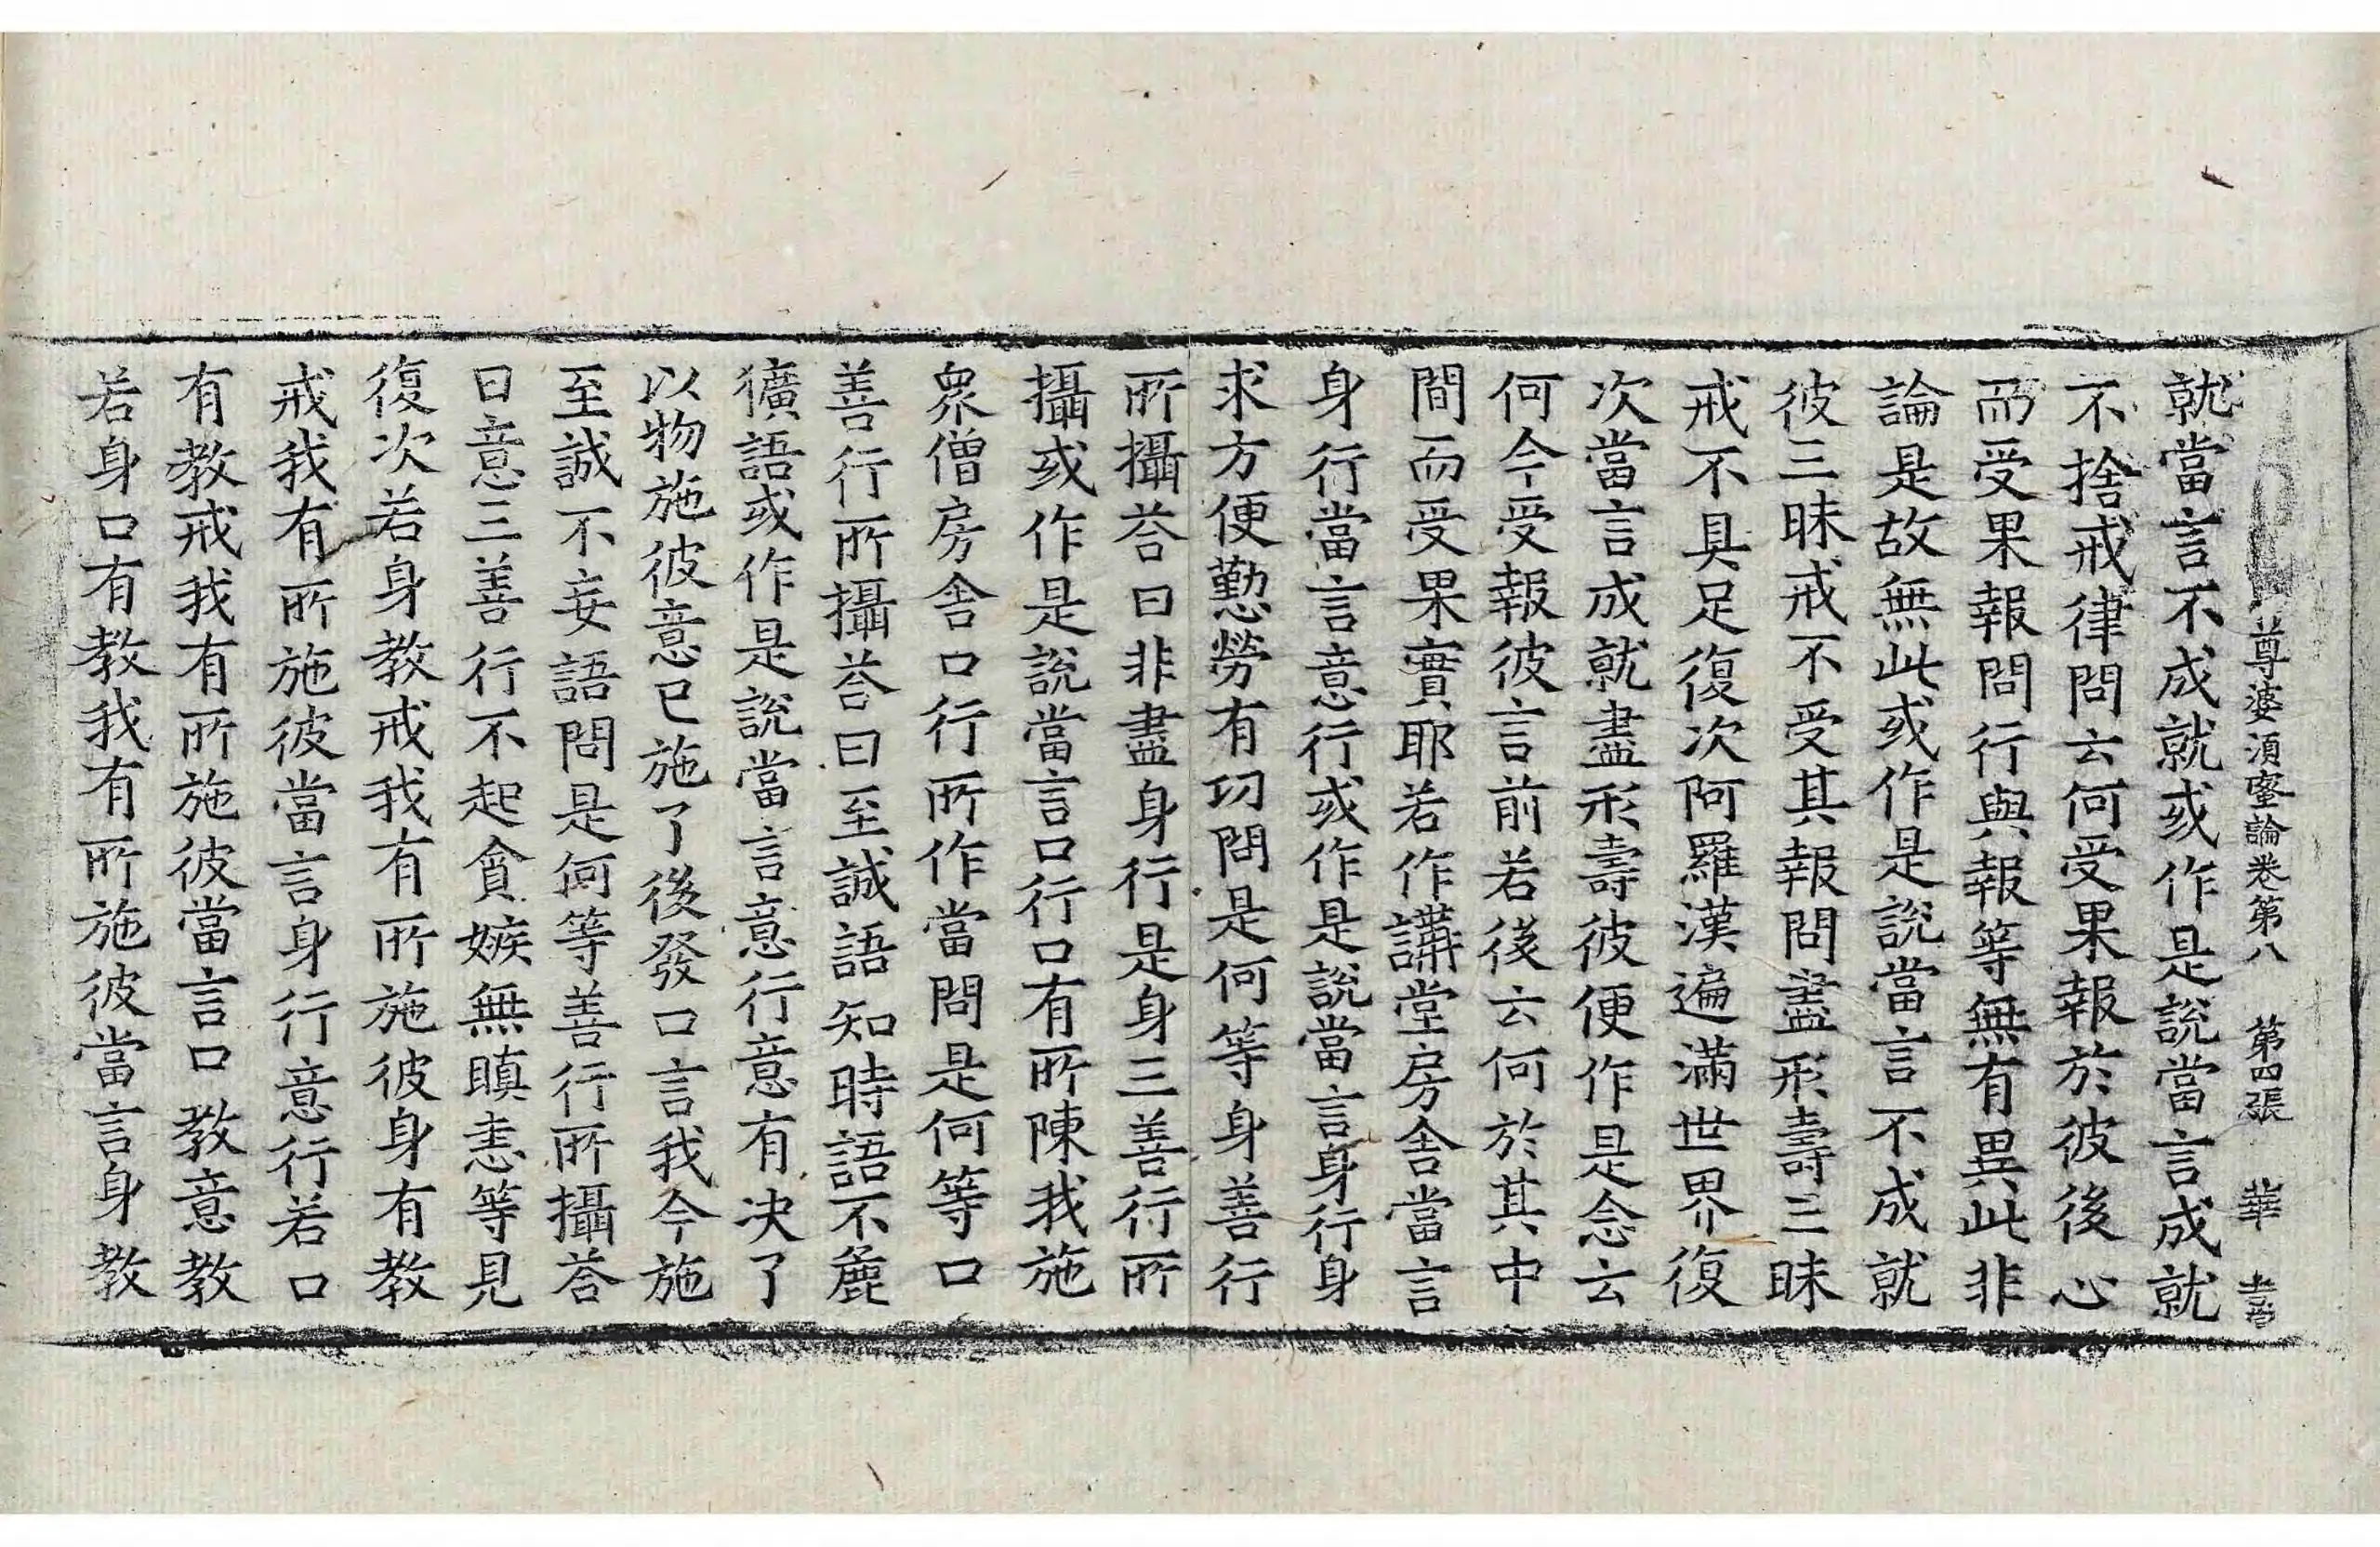 尊婆須蜜論卷第八 第四張 華
就當言不成就或作是說當言成就
不捨戒律問云何受果報於彼後心
而受果報問行與報等無有異此非
論是故無此或作是說當言不成就
彼三昧戒不受其報問盡形壽三昧
戒不具足復次阿羅漢遍滿世界復
次當言成就盡形壽彼便作是念云
何今受報彼言前若後云何於其中
間而受果實耶若作講堂房舍當言
身行當言意行或作是說當言身行身
求方便懃勞有功問是何等身善行
所攝荅曰非盡身行是身三善行所
攝或作是說當言口行口有所陳我施
眾僧房舍口行所作當問是何等口
善行所攝荅曰至誠語知時語不麁
獷語或作是說當言意行意有决了
以物施彼意已施了後發口言我今施
至誠不妄語問是何等善行所攝荅
曰意三善行不起貪嫉無瞋恚等見
復次若身教戒我有所施彼身有教
戒我有所施彼當言身行意行若口
有教戒我有所施彼當言口教意教
若身口有教我有所施彼當言身教